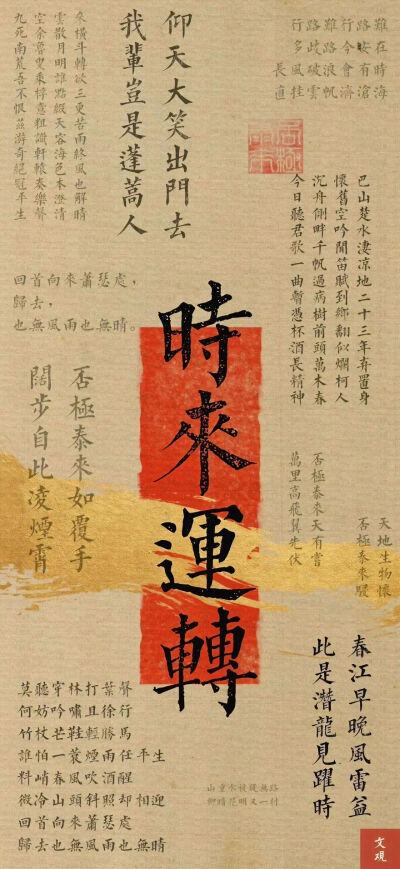 仰天大笑出門去
我輩豈是蓬蒿人
參橫斗轉欲三更苦雨終風也解晴
雲散月明誰點綴天容海色本澄清
空余魯叟乘桴意粗識軒轅奏樂聲
九死南荒吾不恨茲游奇絕冠平生
行路難行路難
多歧路今安在
長風破浪會有時
直挂雲帆濟滄海
巴山楚水淒涼地二十三年弃置身
懷舊空吟聞笛賦到鄉翻似爛柯人
沉舟側畔千帆過病樹前頭萬木春
今日聽君歌一曲暫憑杯酒長精神
回首向來蕭瑟處，
歸去，
也無風雨也無晴。
時來運轉
否極泰來如覆手
闊步自此凌煙霄
否極泰來天有嘗
萬里高飛翼先伏
天地生物懷
否極泰來暖
春江早晚風雷益
此是潛龍見躍時
莫聽穿林打葉聲
何妨吟嘯且徐行
竹杖芒鞋輕勝馬
誰怕一蓑煙雨任平生
料峭春風吹酒醒
微冷山頭斜照卻相迎
回首向來蕭瑟處
歸去也無風雨也無晴
山重水複疑無路
柳暗花明又一村
文觀